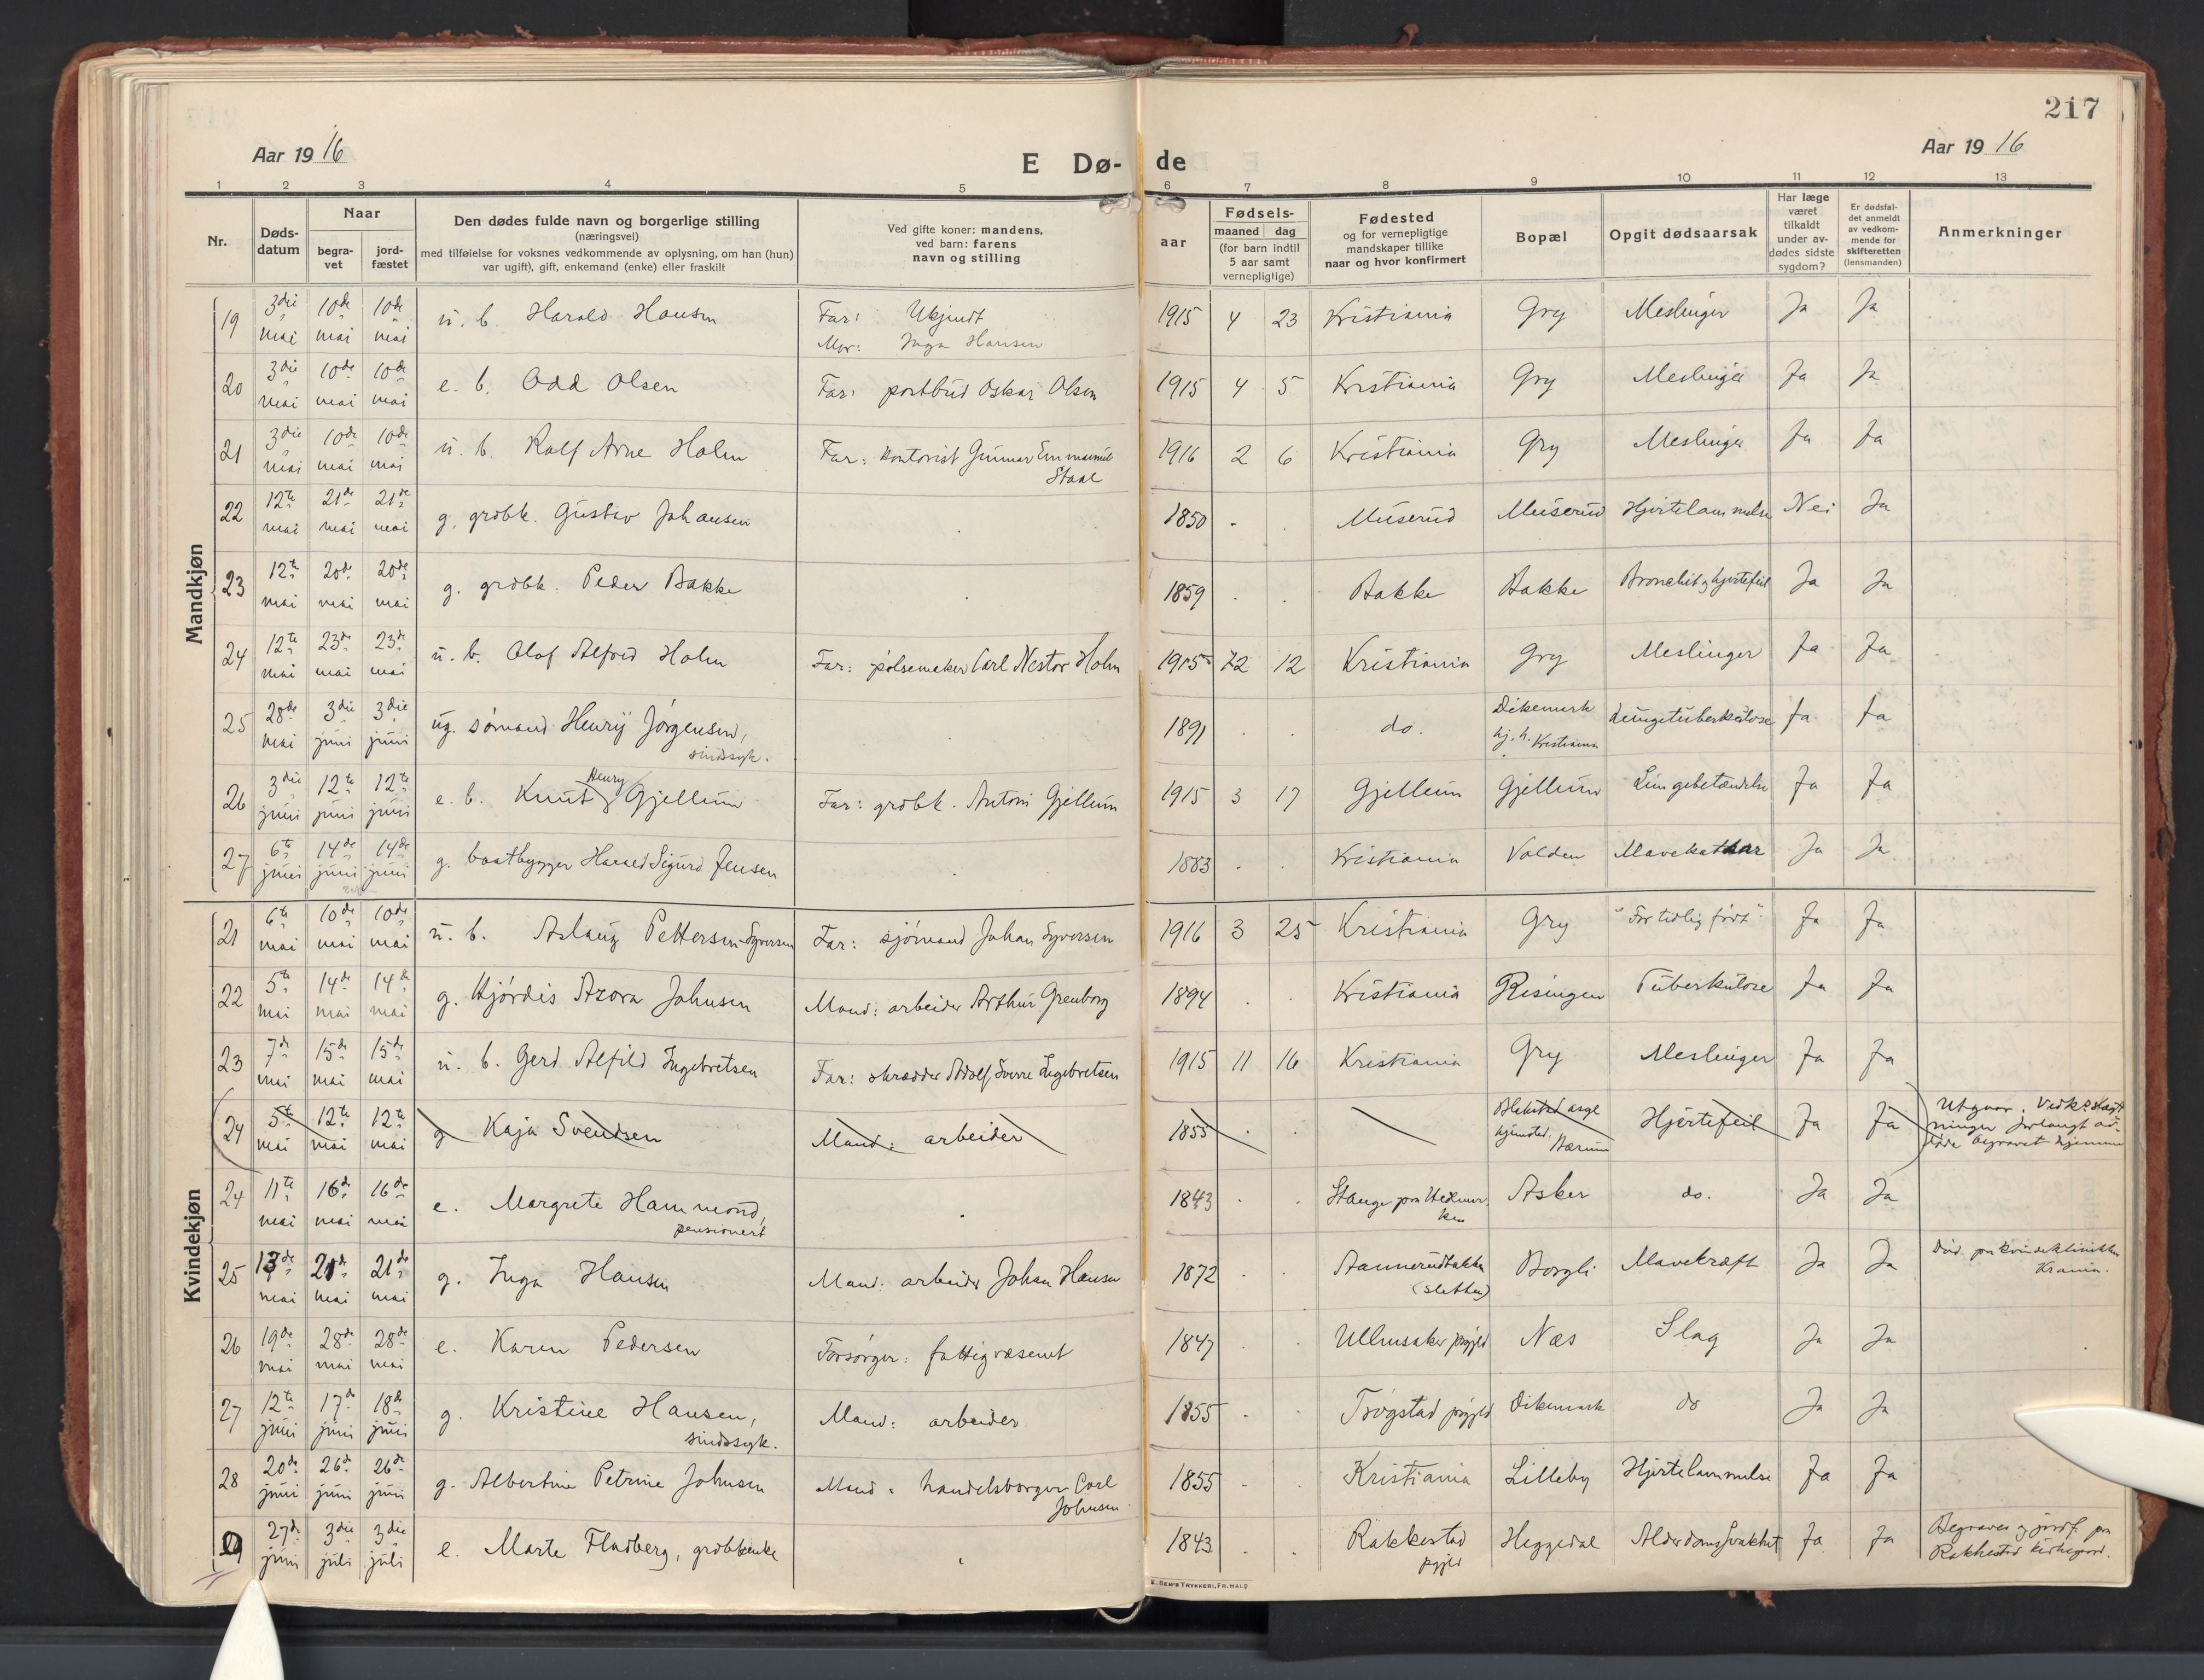 217
Aar 19 16
E Dø- de
Aar 19 16
1 2 3 4 5 6 7 8 9 10 11 12 13
Nr.
Døds-
datum
Naar
begra-
vet
jord-
fæstet
Den dødes fulde navn og borgerlige stilling
(næringsvei)
med tilføielse for voksnes vedkommende av oplysning, om han (hun)
var ugift), gift, enkemand (enke) eller fraskilt
Ved gifte koner: mandens,
ved barn: farens
navn og stilling
aar
Fødsels-
maaned dag
(for barn indtil
5 aar samt
vernepligtige)
Fødested
og for vernepligtige
mandskaper tillike
naar og hvor konfirmert
Bopæl
Opgit dødsaarsak
Har læge
været
tilkaldt
under av-
dødes sidste
sygdom?
Er dødsfal-
det anmeldt
av vedkom-
mende for
skifteretten
(lensmanden)
Anmerkninger
Mandkjøn
19 3die mai 10de mai 10de mai u. b. Harald Hansen Far: Ukjendt 1915 4 23 Kristiania Gry Meslinger Ja Ja
Mor: Inga Hansen
20 3die mai 10de mai 10de mai e. b. Odd Olsen Far: postbud Oskar Olsen 1915 4 5 Kristiania Gry Meslinger Ja Ja
21 3die mai 10de mai 10de mai u. b. Rolf Arne Holm Far: kontorist Gunnar Emmanuel 1916 2 6 Kristiania Gry Meslinger Ja Ja
Staal
22 12te mai 21de mai 21de mai g. grdbk. Gustav Johansen 1850 Muserud Muserud Hjertelammelse Nei Ja
23 12te mai 20de mai 20de mai g. grdbk. Peder Bakke 1859 Bakke Bakke Bronchit og hjertefeil Ja Ja
24 12te mai 23de mai 23de mai u. b. Olaf Alfred Holm Far: pølsemaker Carl Nestor Holm 1915 12 12 Kristiania Gry Meslinger Ja Ja
25 28de mai 3die juni 3die juni ug. sømand Henry Jørgensen, 1891 do. Dikemark Lungetuberkulose Ja Ja
sindssyk. hj. h. Kristiania
26 3die juni 12te juni 12te juni e. b. Knut Henry Gjellum Far: grdbk. Anton Gjellum 1915 3 17 Gjellum Gjellum Lungebetændelse Ja Ja
27 6te juni 14de juni 14de juni g. baatbygger Harald Sigurd Jensen 1883 Kristiania Volden Mavekatarr Ja Ja
Kvindekjøn
21 6te mai 10de mai 10de mai u. b. Aslaug Pettersen-Syversen Far: sjømand Johan Syversen 1916 3 25 Kristiania Gry "For tidlig født". Ja Ja
22 5te mai 14de mai 14de mai g. Hjørdis Azora Johnsen Mand: arbeider Arthur Grenborg 1894 Kristiania Risingen Tuberkulose Ja Ja
23 7de mai 15de mai 15de mai u. b. Gerd Alfild Ingebretsen Far: skrædder Adolf Sverre Ingebretsen 1915 11 16 Kristiania Gry Meslinger Ja Ja
24 5te mai 12te mai 12te mai g Kaja Svendsen Mand: arbeider 1855 Blakstad asyl Hjertefeil Ja Ja Utgaar.
hjemsted: Bærum begravet hjemme
24 11te mai 16de mai 16de mai e. Margrete Hammond, 1843 Stange paa Hedemar- Asker do. Ja Ja
pensionert ken
25 13de mai 21de mai 21de mai g. Inga Hansen Mand: arbeider Johan Hansen 1872 Aannerudbakken Borgli Mavekræft Ja Ja Død paa kvindeklinikken
(Sletten) Krania.
26 19de mai 28de mai 28de mai e. Karen Pedersen Forsørger: fattigvæsenet 1847 Ullensaker prgjld Næs Slag Ja Ja
27 12te juni 17de juni 18de juni g. Kristine Hansen, Mand: arbeider 1855 Trøgstad prgjld Dikemark do Ja Ja
sindssyk.
28 20de juni 26de juni 26de juni g. Albertine Petrine Johnsen Mand: handelsborger Carl 1855 Kristiania Lilleby Hjertelammelse Ja Ja
Johnsen
29 27de juni 3die juli 3die juli e. Marte Fladberg, grdbkenke 1843 Rakkestad Heggedal Alderdomssvakhet Ja Ja Begraves og jordf. paa
pgjld Rakkestad kirkegaard.
E. SEM'S TRYKKERI, FR.HALD